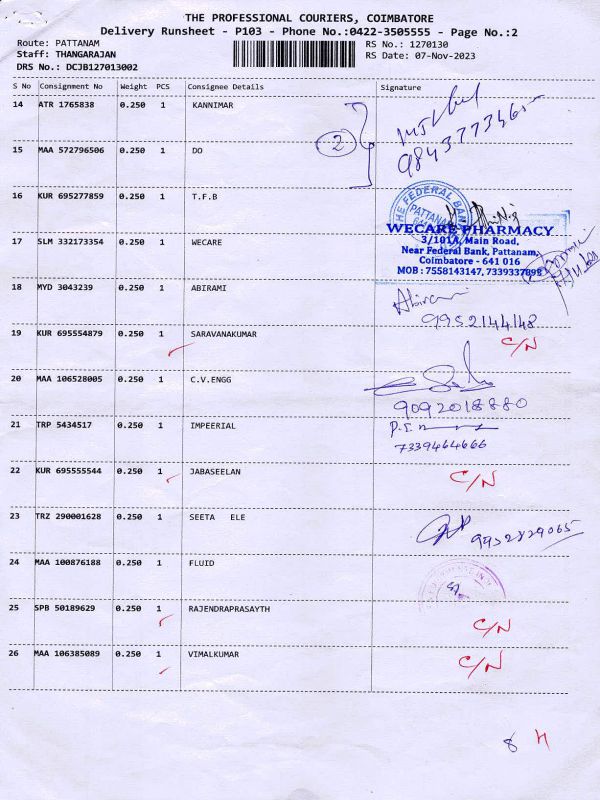 THE PROFESSIONAL COURIERS, COIMBATORE
Delivery Runsheet - P103 - Phone No.:0422-3505555 - Page No.:2
Route: PATTANAM
RS No.: 1270130
Staff: THANGARAJAN
RS Date: 07-Nov-2023
DRS No.: DCJB127013002
S No Consignment No Weight PCS Consignee Details Signature
14 ATR 1765838 0.250 1 KANNIMAR
2
15 MAA 572796506 0.250 1 DO
16 KUR 695277859 0.250 1 T.F.B
THE FEDERAL BANK
PATTANAM
17 SLM 332173354 0.250 1 WECARE
WECARE PHARMACY
3/101A, Main Road,
Near Federal Bank, Pattanam,
Coimbatore - 641 016
MOB : 7558143147, 7339337899
18 MYD 3043239 0.250 1 ABIRAMI
Abirami
9952144148
19 KUR 695554879 0.250 1 SARAVANAKUMAR C/N
20 MAA 106528005 0.250 1 C.V.ENGG
9092018880
21 TRP 5434517 0.250 1 IMPEERIAL
7339464666
22 KUR 695555544 0.250 1 JABASEELAN C/N
23 TRZ 290001628 0.250 1 SEETA ELE 9952829065
24 MAA 100876188 0.250 1 FLUID
25 SPB 50189629 0.250 1 RAJENDRAPRASAYTH C/N
26 MAA 106385089 0.250 1 VIMALKUMAR C/N
8 4